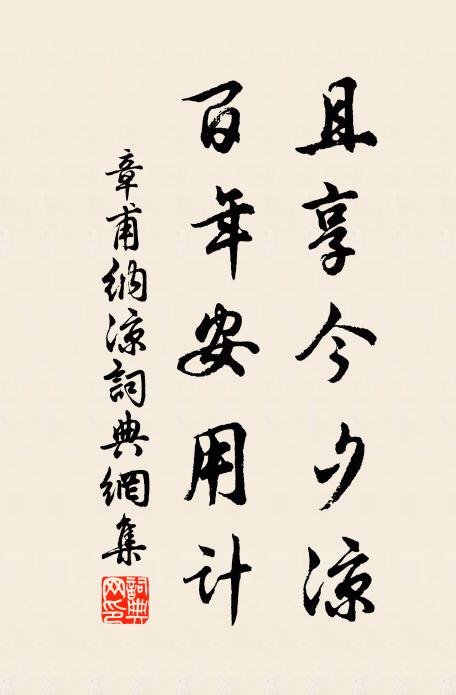 且享今夕涼
百年安用计
章甫納涼詞典網集
詞典網印